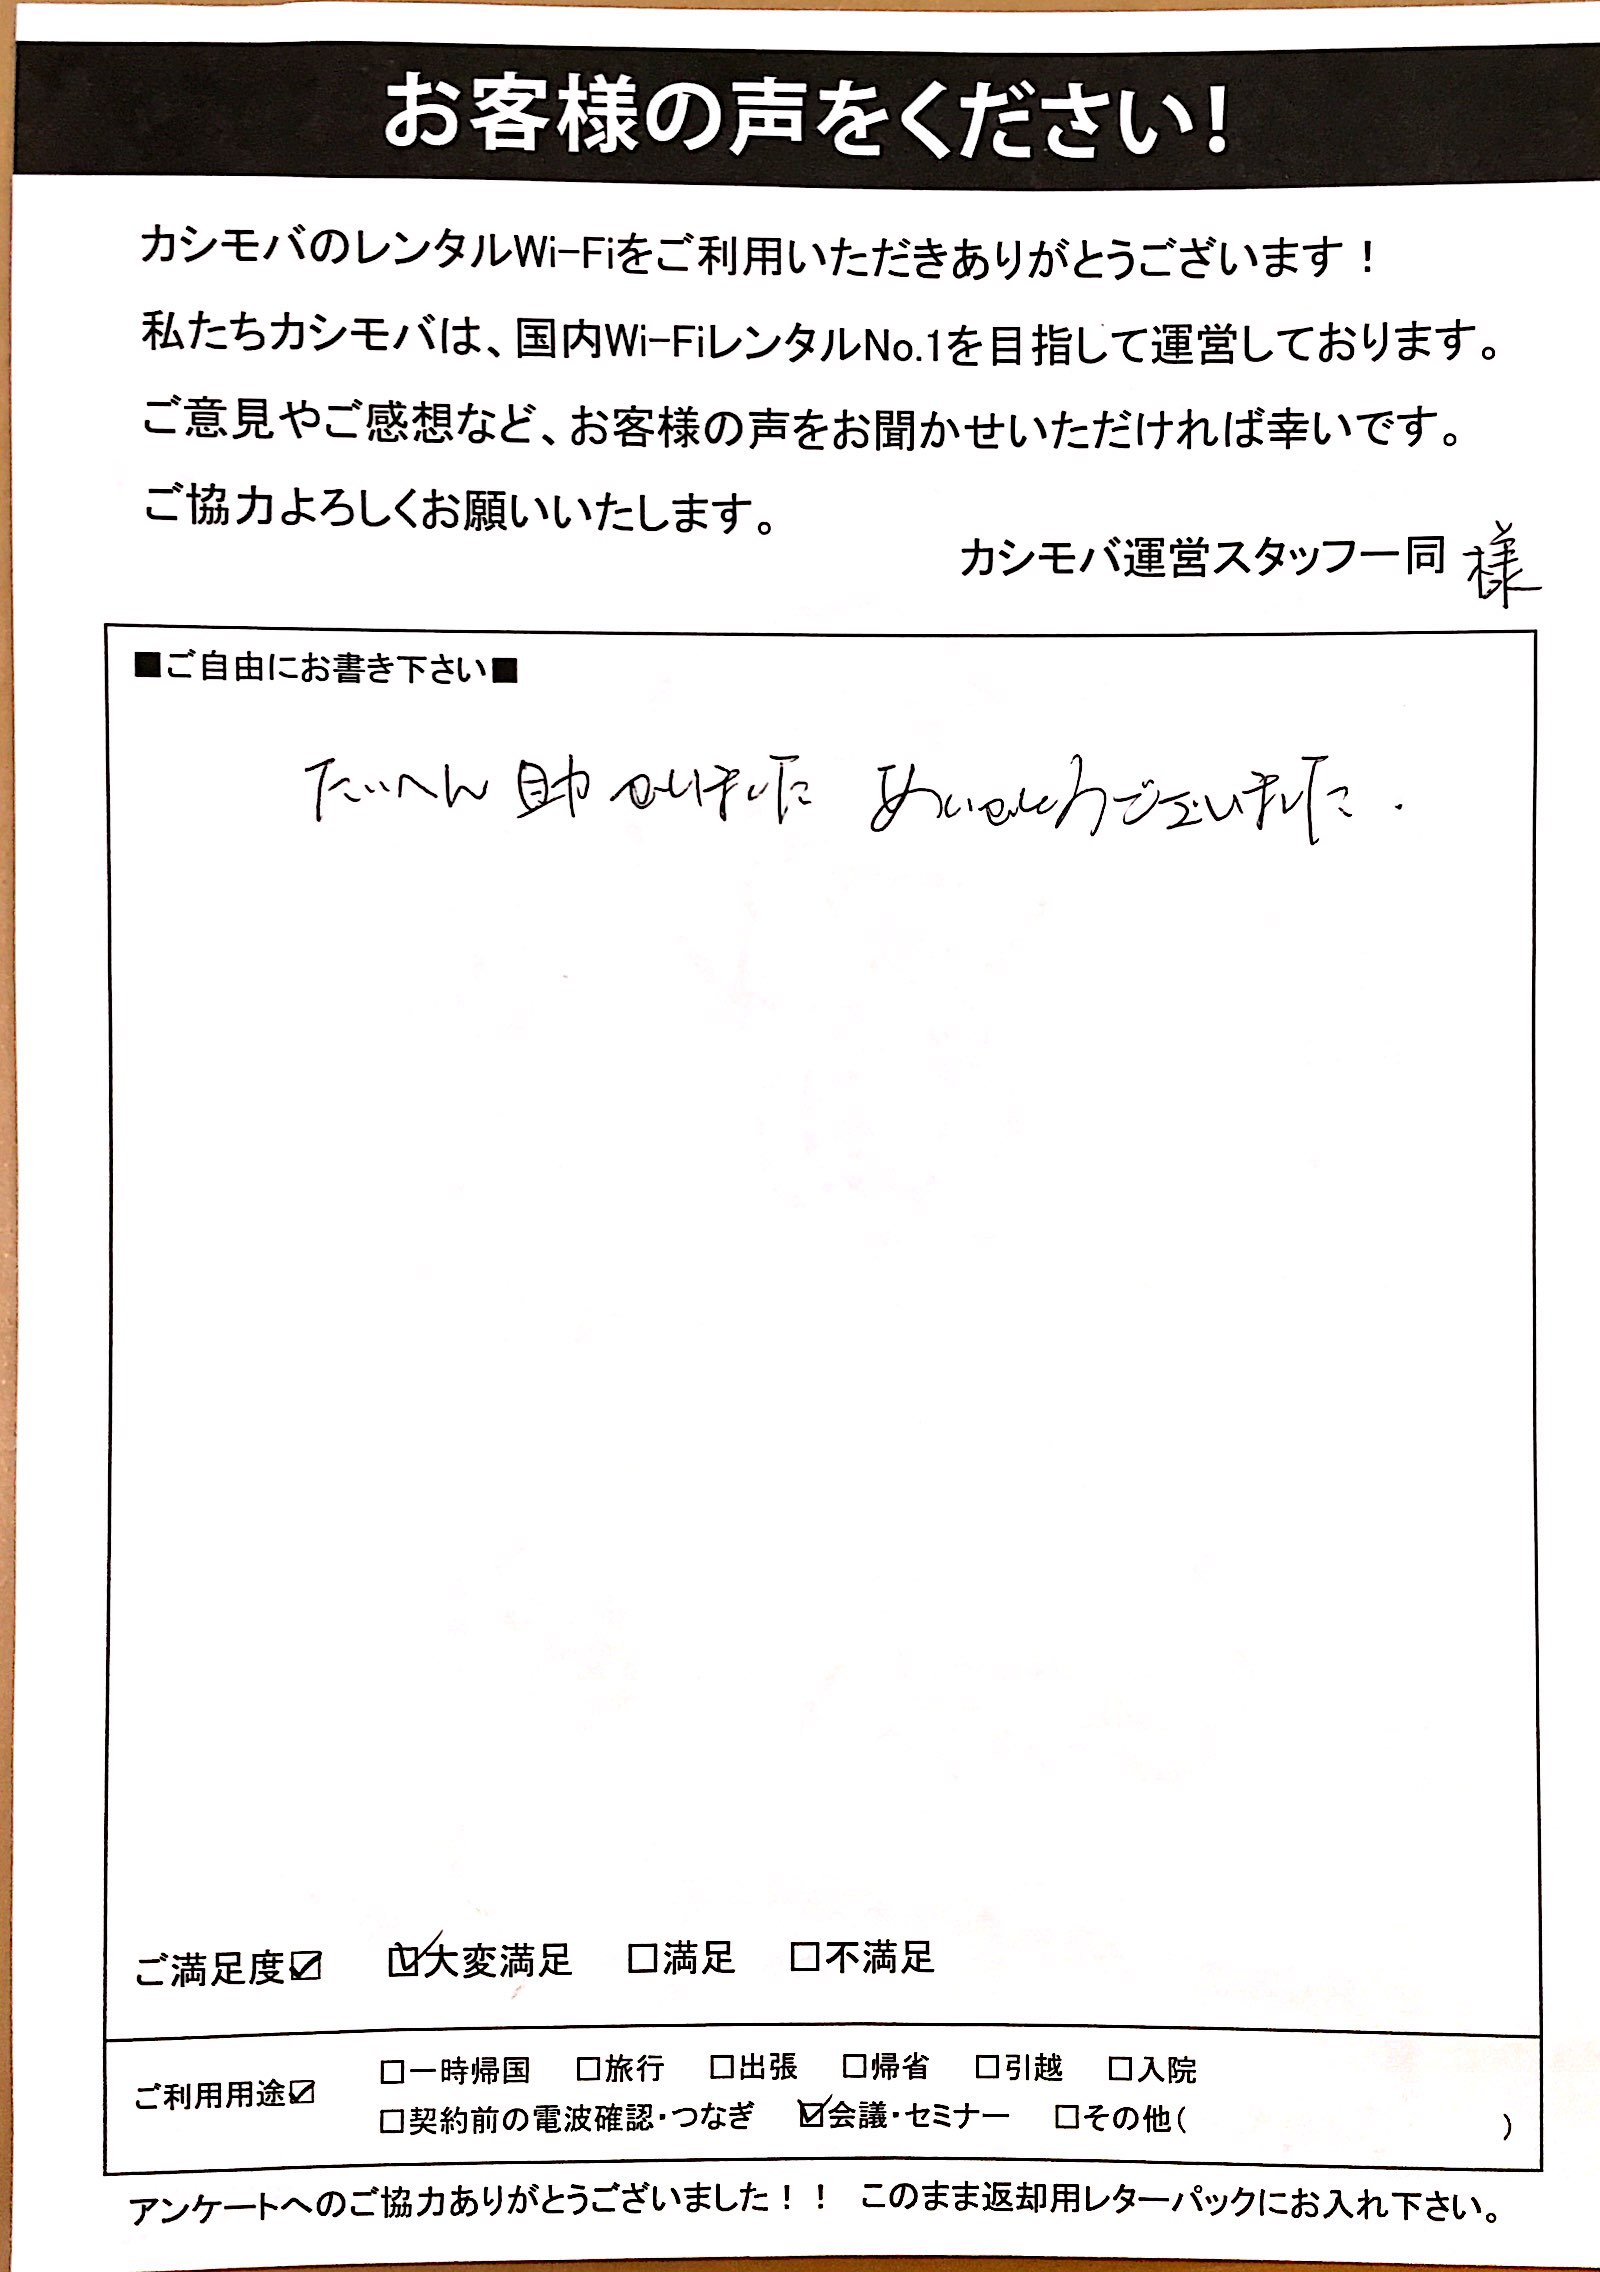 お客様の声をください!
カシモバのレンタルWi-Fiをご利用いただきありがとうございます！
私たちカシモバは、国内Wi-FiレンタルNo.1を目指して運営しております。
ご意見やご感想など、お客様の声をお聞かせいただければ幸いです。
ご協力よろしくお願いいたします。
カシモバ運営スタッフ一同 様
■ご自由にお書き下さい■
たいへん 助かりました ありがとうございました.
ご満足度☑ ☑大変満足 □満足 □不満足
ご利用用途☑ □一時帰国 □旅行 □出張 □帰省 □引越 □入院
□契約前の電波確認・つなぎ ☑会議・セミナー □その他( )
アンケートへのご協力ありがとうございました！！ このまま返却用レターパックにお入れ下さい。